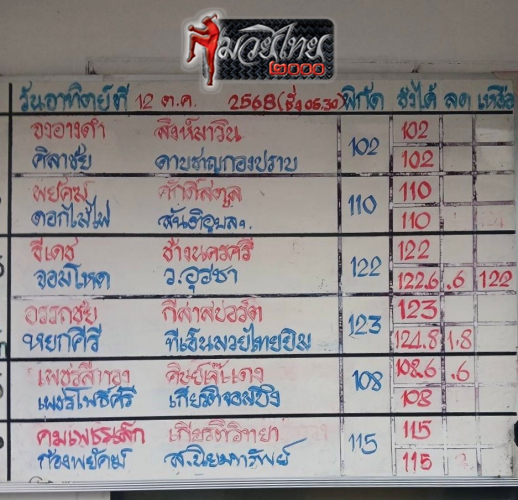 มวยไทย
๒๐๐๐
วันอาทิตย์ที่ 12 ต.ค. 2568 (ชั่ง 05.30) พิกัด ชั่งได้ ลด เหลือ
องอาจดำ สิงห์มาวิน 102 102
ศิลาชัย ดาบชาญกองปราบ 102
พยัคฆ์ ศักดิ์สตูล 110 110
ดอกไม้ไฟ สันติอุบลฯ 110
ขี่เดช ช้างนครศรี 122 122
จอมโหด ว.อุรชา 122.6 .6 122
อรรถชัย กีล่าสปอร์ต 123 123
หยกศิรี ทีเอ็นมวยไทยยิม 124.8 1.8
เพชรสีทอง ศิษย์เจ๊แดง 108 108.6 .6
เพชรโพธิ์ศรี เกียรติจอมบึง 108
คมเพชรเล็ก เกียรติวิทยา 115 115
ก้องพยัคฆ์ ส.นิยมทรัพย์ 115